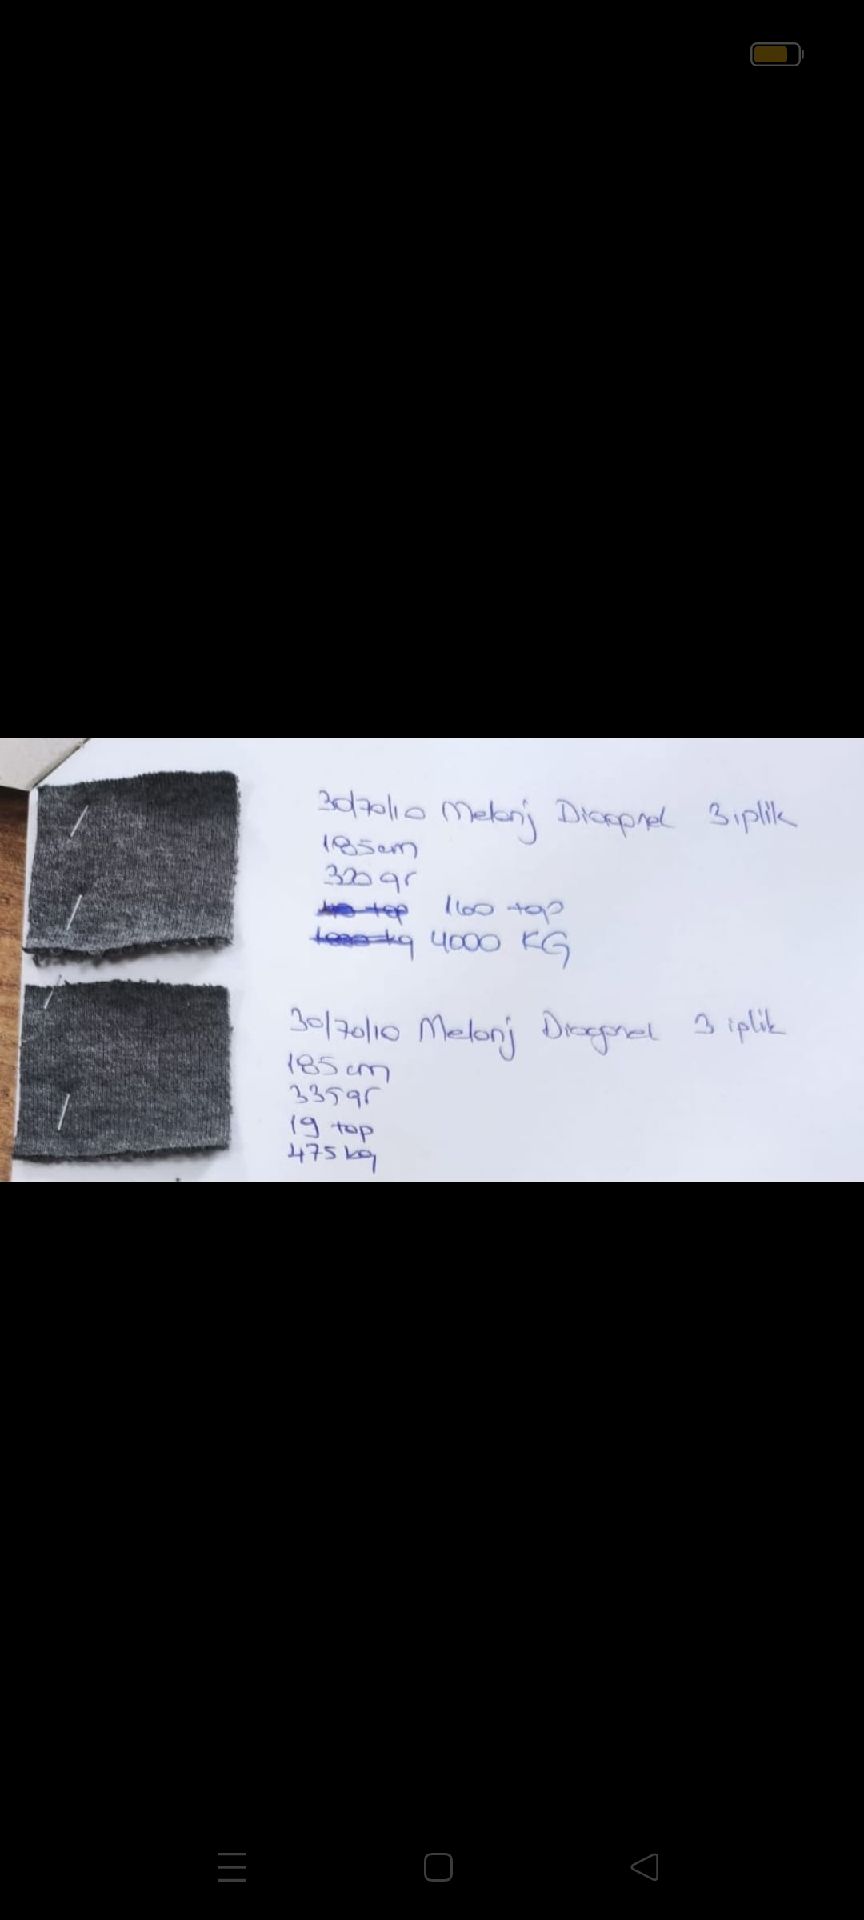 30/70/10 Melanj Diagonal 3 iplik
185 cm
320 gr
40 top 160 top
1000 kg 4000 KG
30/70/10 Melanj Diagonal 3 iplik
185 cm
335 gr
19 top
475 kg